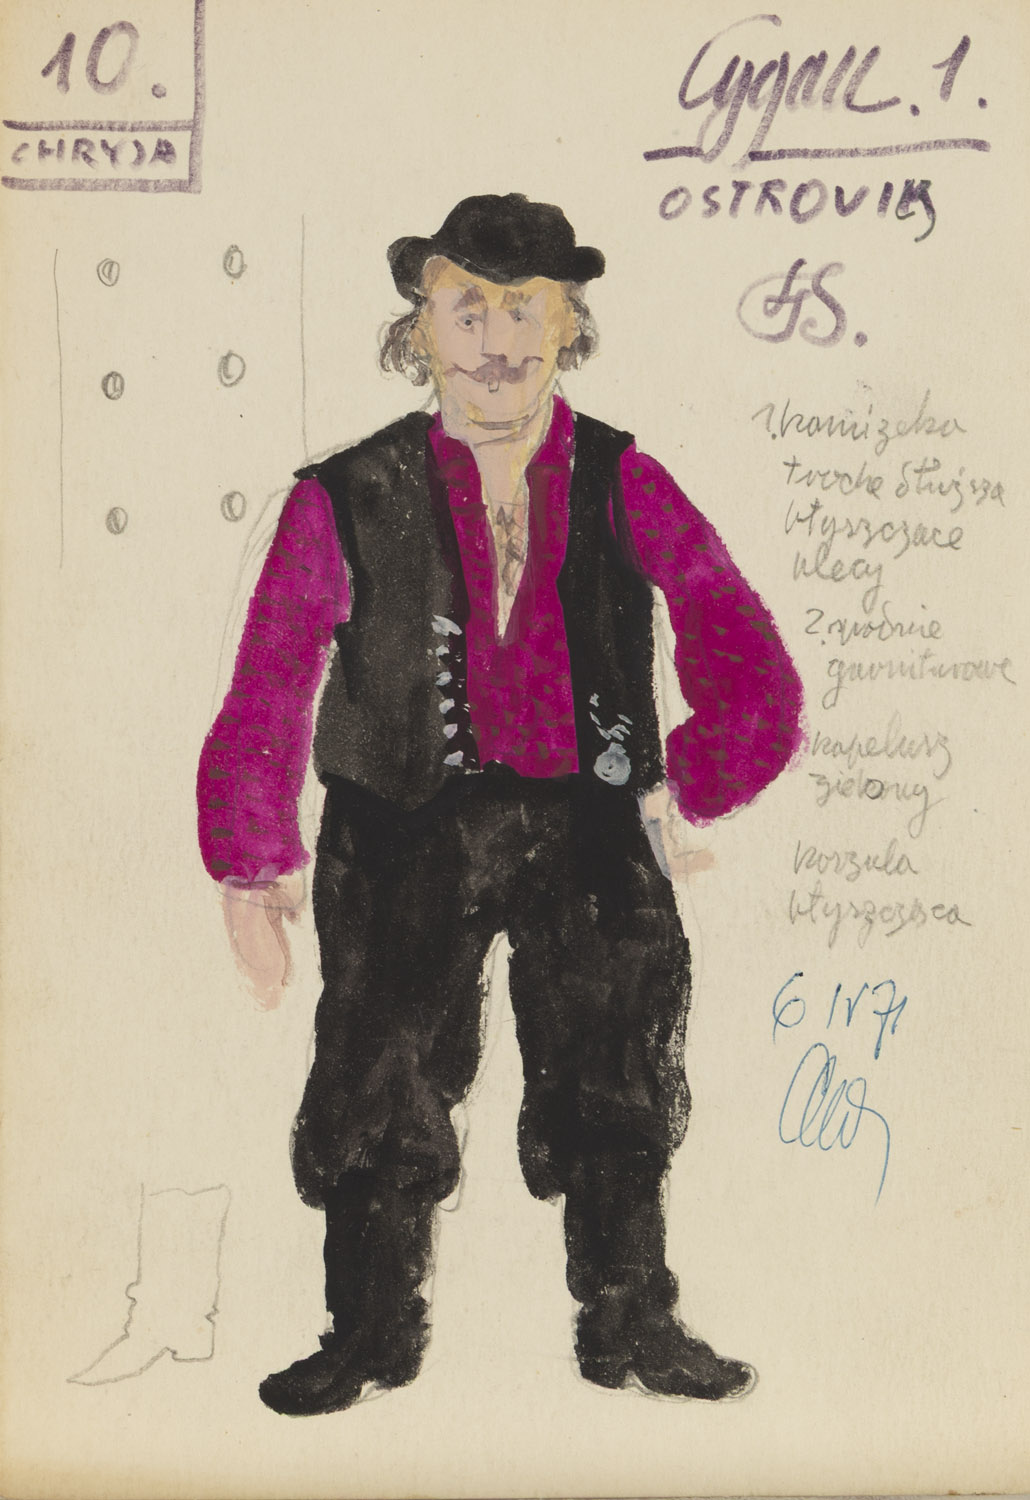 10.
CHRYJA
Cygan. 1.
OSTROVIK
1. kamizelka
trochę dłuższa
błyszczące
plecy
2. spodnie
garniturowe
kapelusz
zielony
koszula
błyszcząca
6 IV 71